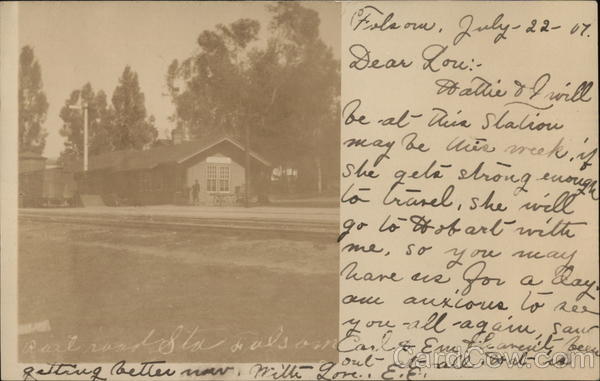 Folsom, July-22-07.
Dear Lou:-
Hattie & I will
be at this Station
may be this week, if
she gets strong enough
to travel, she will
go to Hobart with
me, so you may
have us for a day.
am anxious to see
you-all-again, saw
Carl & Em haven't been
out at all but is
getting better now. With Love. E.E.
Railroad Sta Folsom
CardCow.com